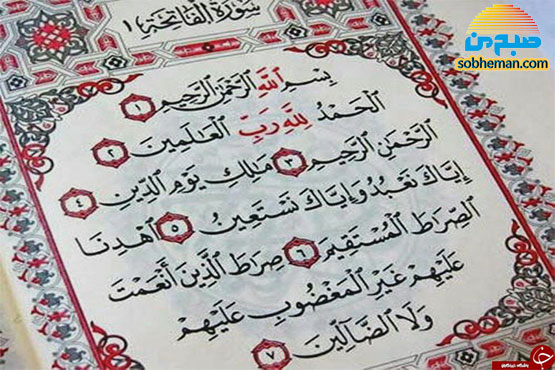 سُورَةُ الْفَاتِحَةِ ١
صبح من
sobheman.com
بِسْمِ ٱللَّهِ ٱلرَّحْمَٰنِ ٱلرَّحِيمِ ١
ٱلْحَمْدُ لِلَّهِ رَبِّ ٱلْعَٰلَمِينَ ٢
ٱلرَّحْمَٰنِ ٱلرَّحِيمِ ٣ مَٰلِكِ يَوْمِ ٱلدِّينِ ٤
إِيَّاكَ نَعْبُدُ وَإِيَّاكَ نَسْتَعِينُ ٥ ٱهْدِنَا
ٱلصِّرَٰطَ ٱلْمُسْتَقِيمَ ٦ صِرَٰطَ ٱلَّذِينَ أَنْعَمْتَ
عَلَيْهِمْ غَيْرِ ٱلْمَغْضُوبِ عَلَيْهِمْ
وَلَا ٱلضَّآلِّينَ ٧